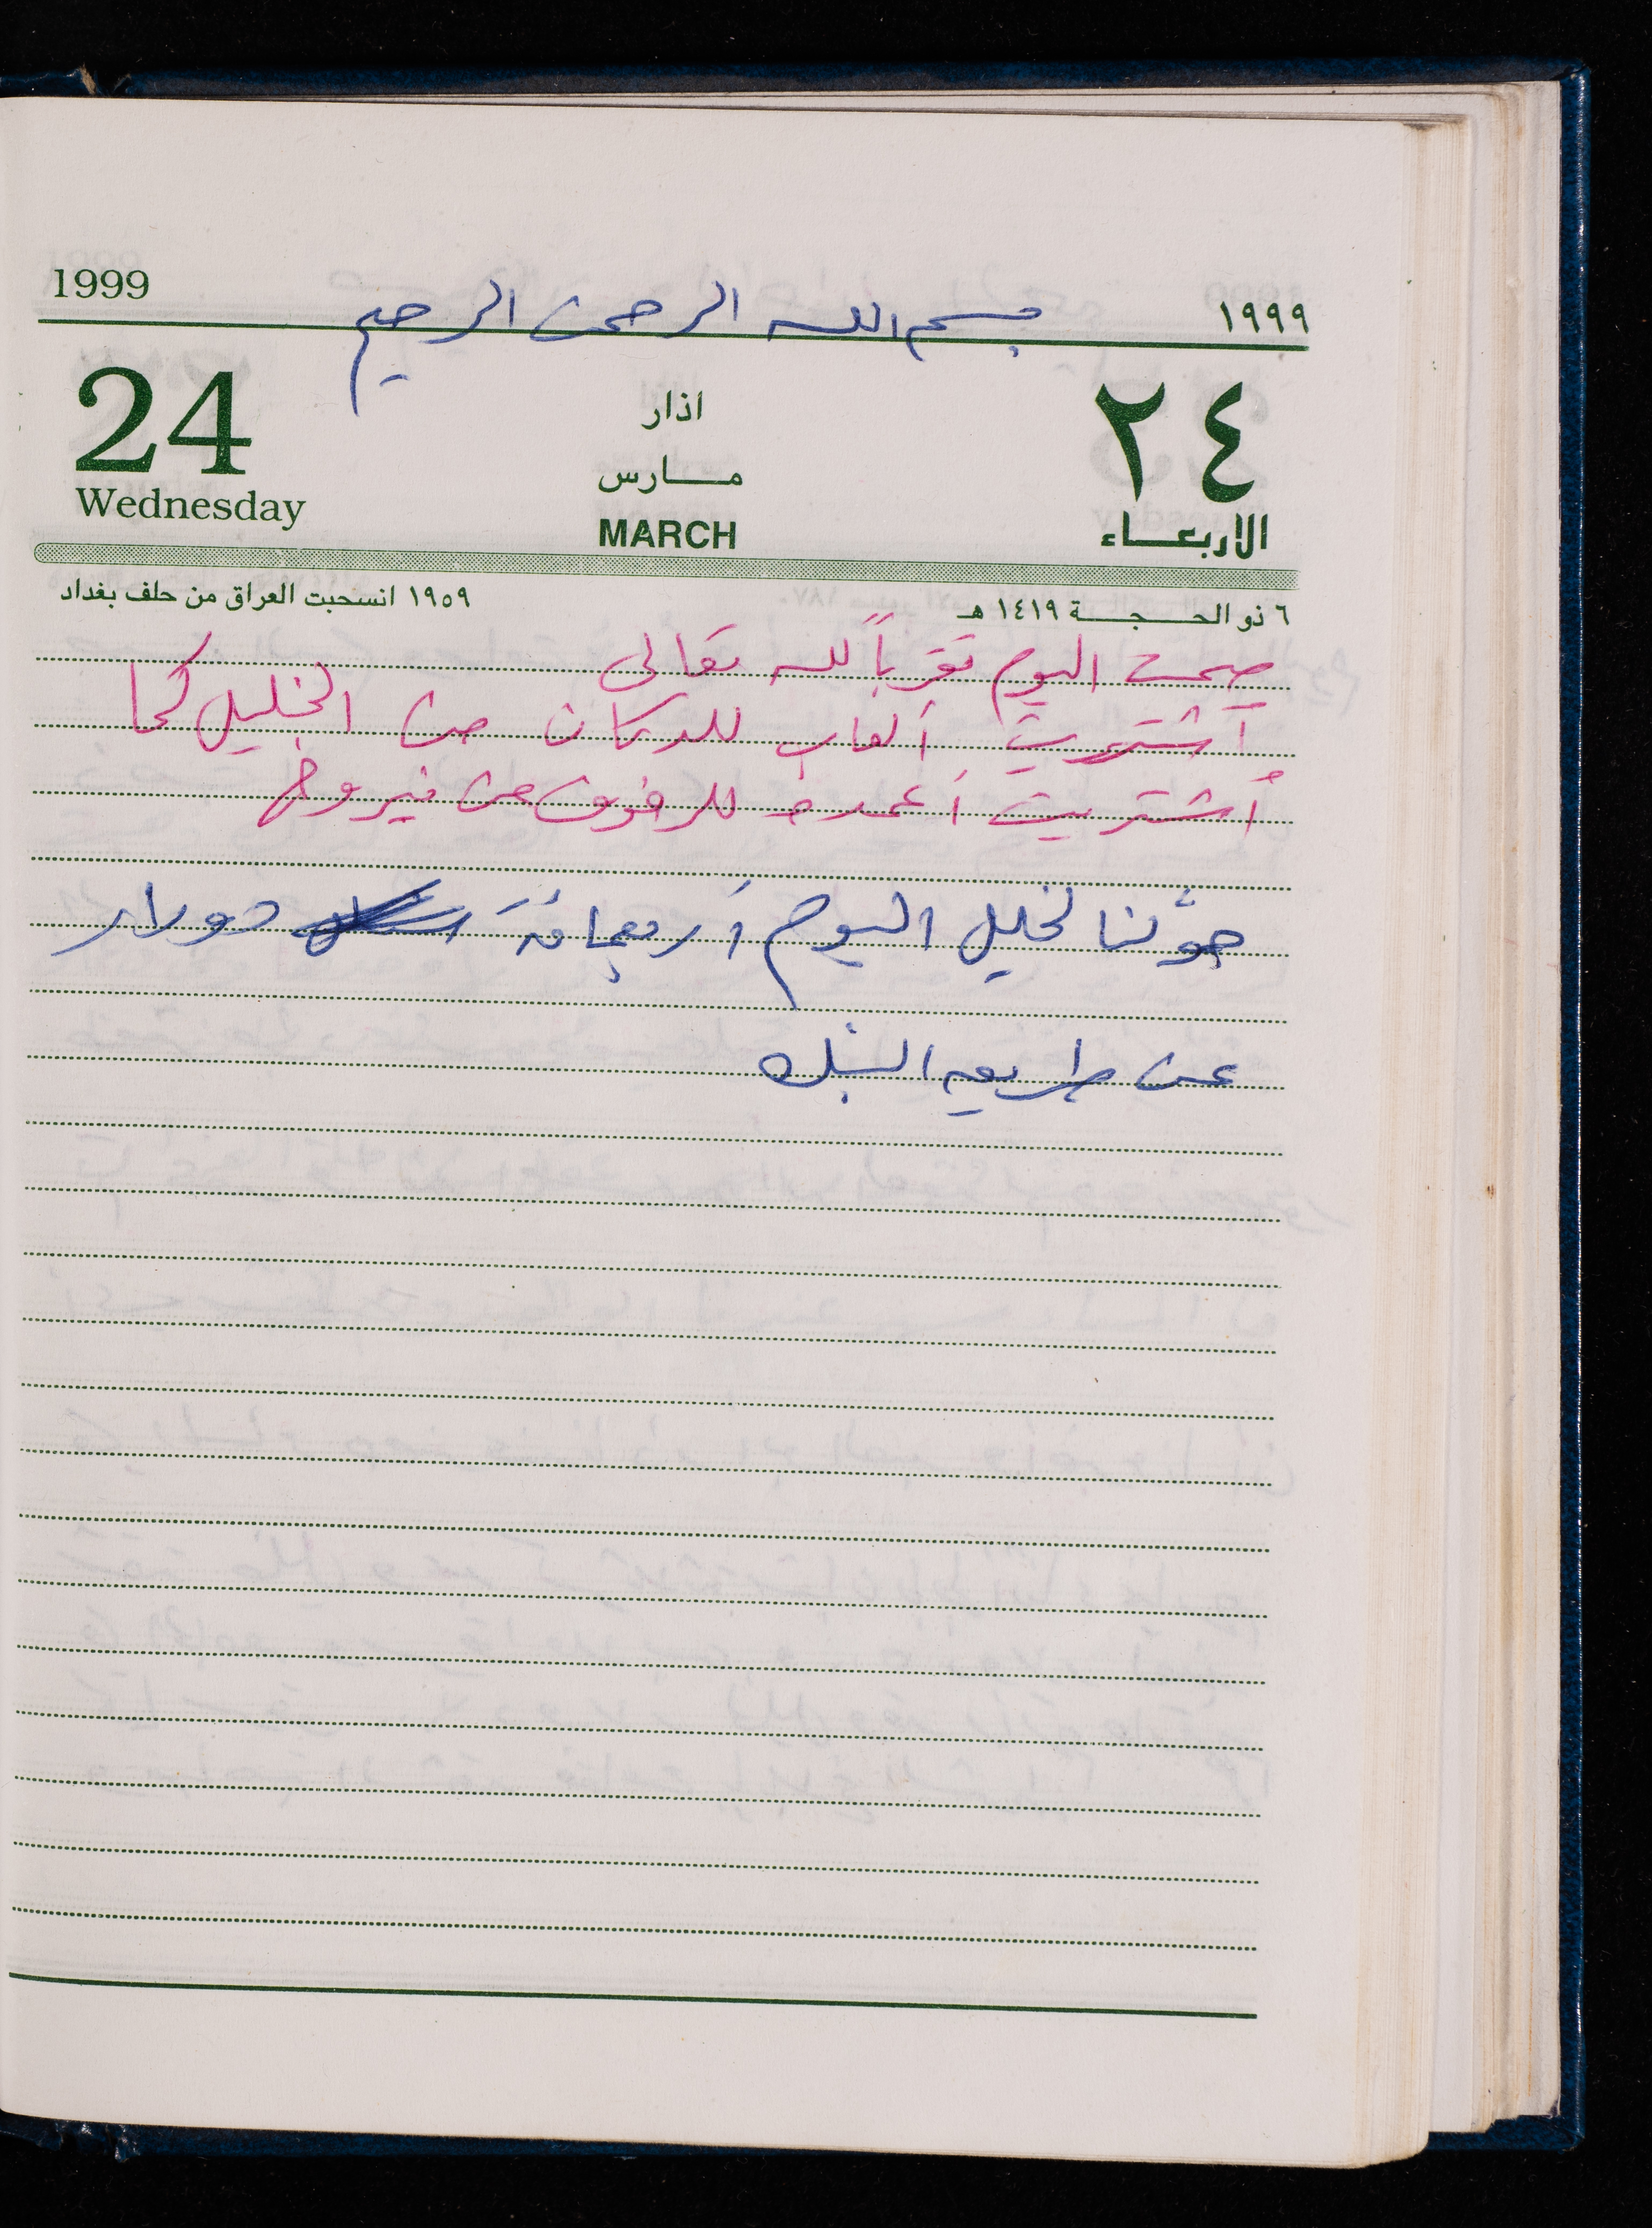 1999 بسم الله الرحمن الرحيم ١٩٩٩
24 اذار ٢٤
Wednesday مارس الاربعاء
MARCH
٦ ذو الحجة ١٤١٩ هـ ١٩٥٩ انسحبت العراق من حلف بغداد
صمت اليوم تقرباً لله تعالى
أشتريت ألعاب للدكان من الخليل كما
أشتريت أعمدة للرفوف من فيروخ
حوّلنا لخليل اليوم أربعمائة دولار
عن طريق البنك